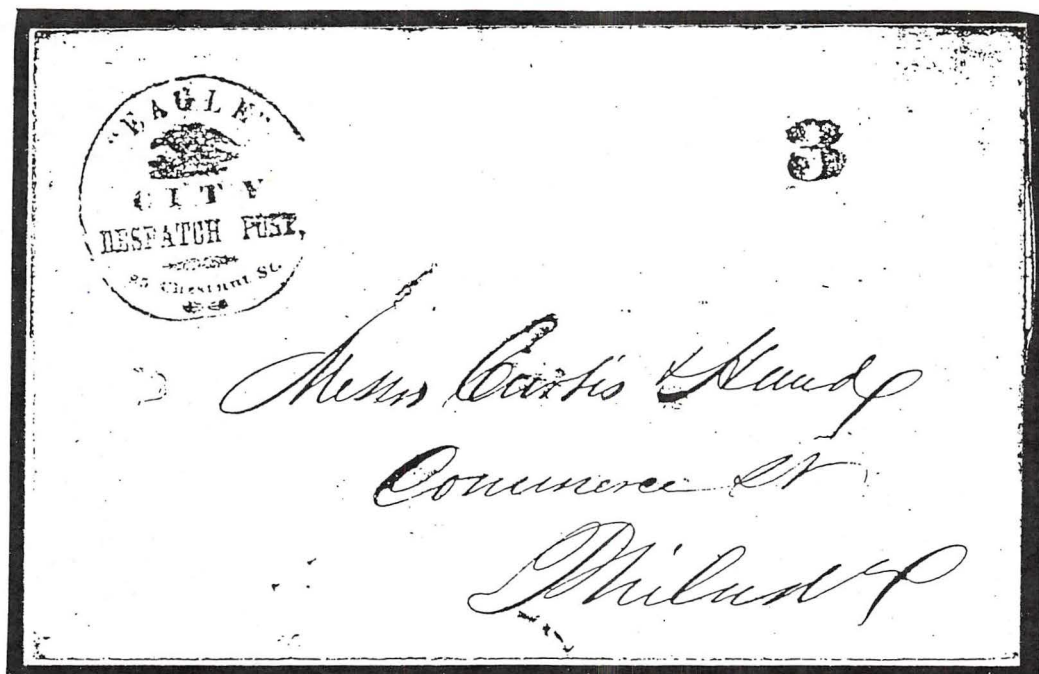 "EAGLE"
CITY
DESPATCH POST,
85 Chestnut St.
3
Messrs Curtis & Hand
Commerce St
Philada